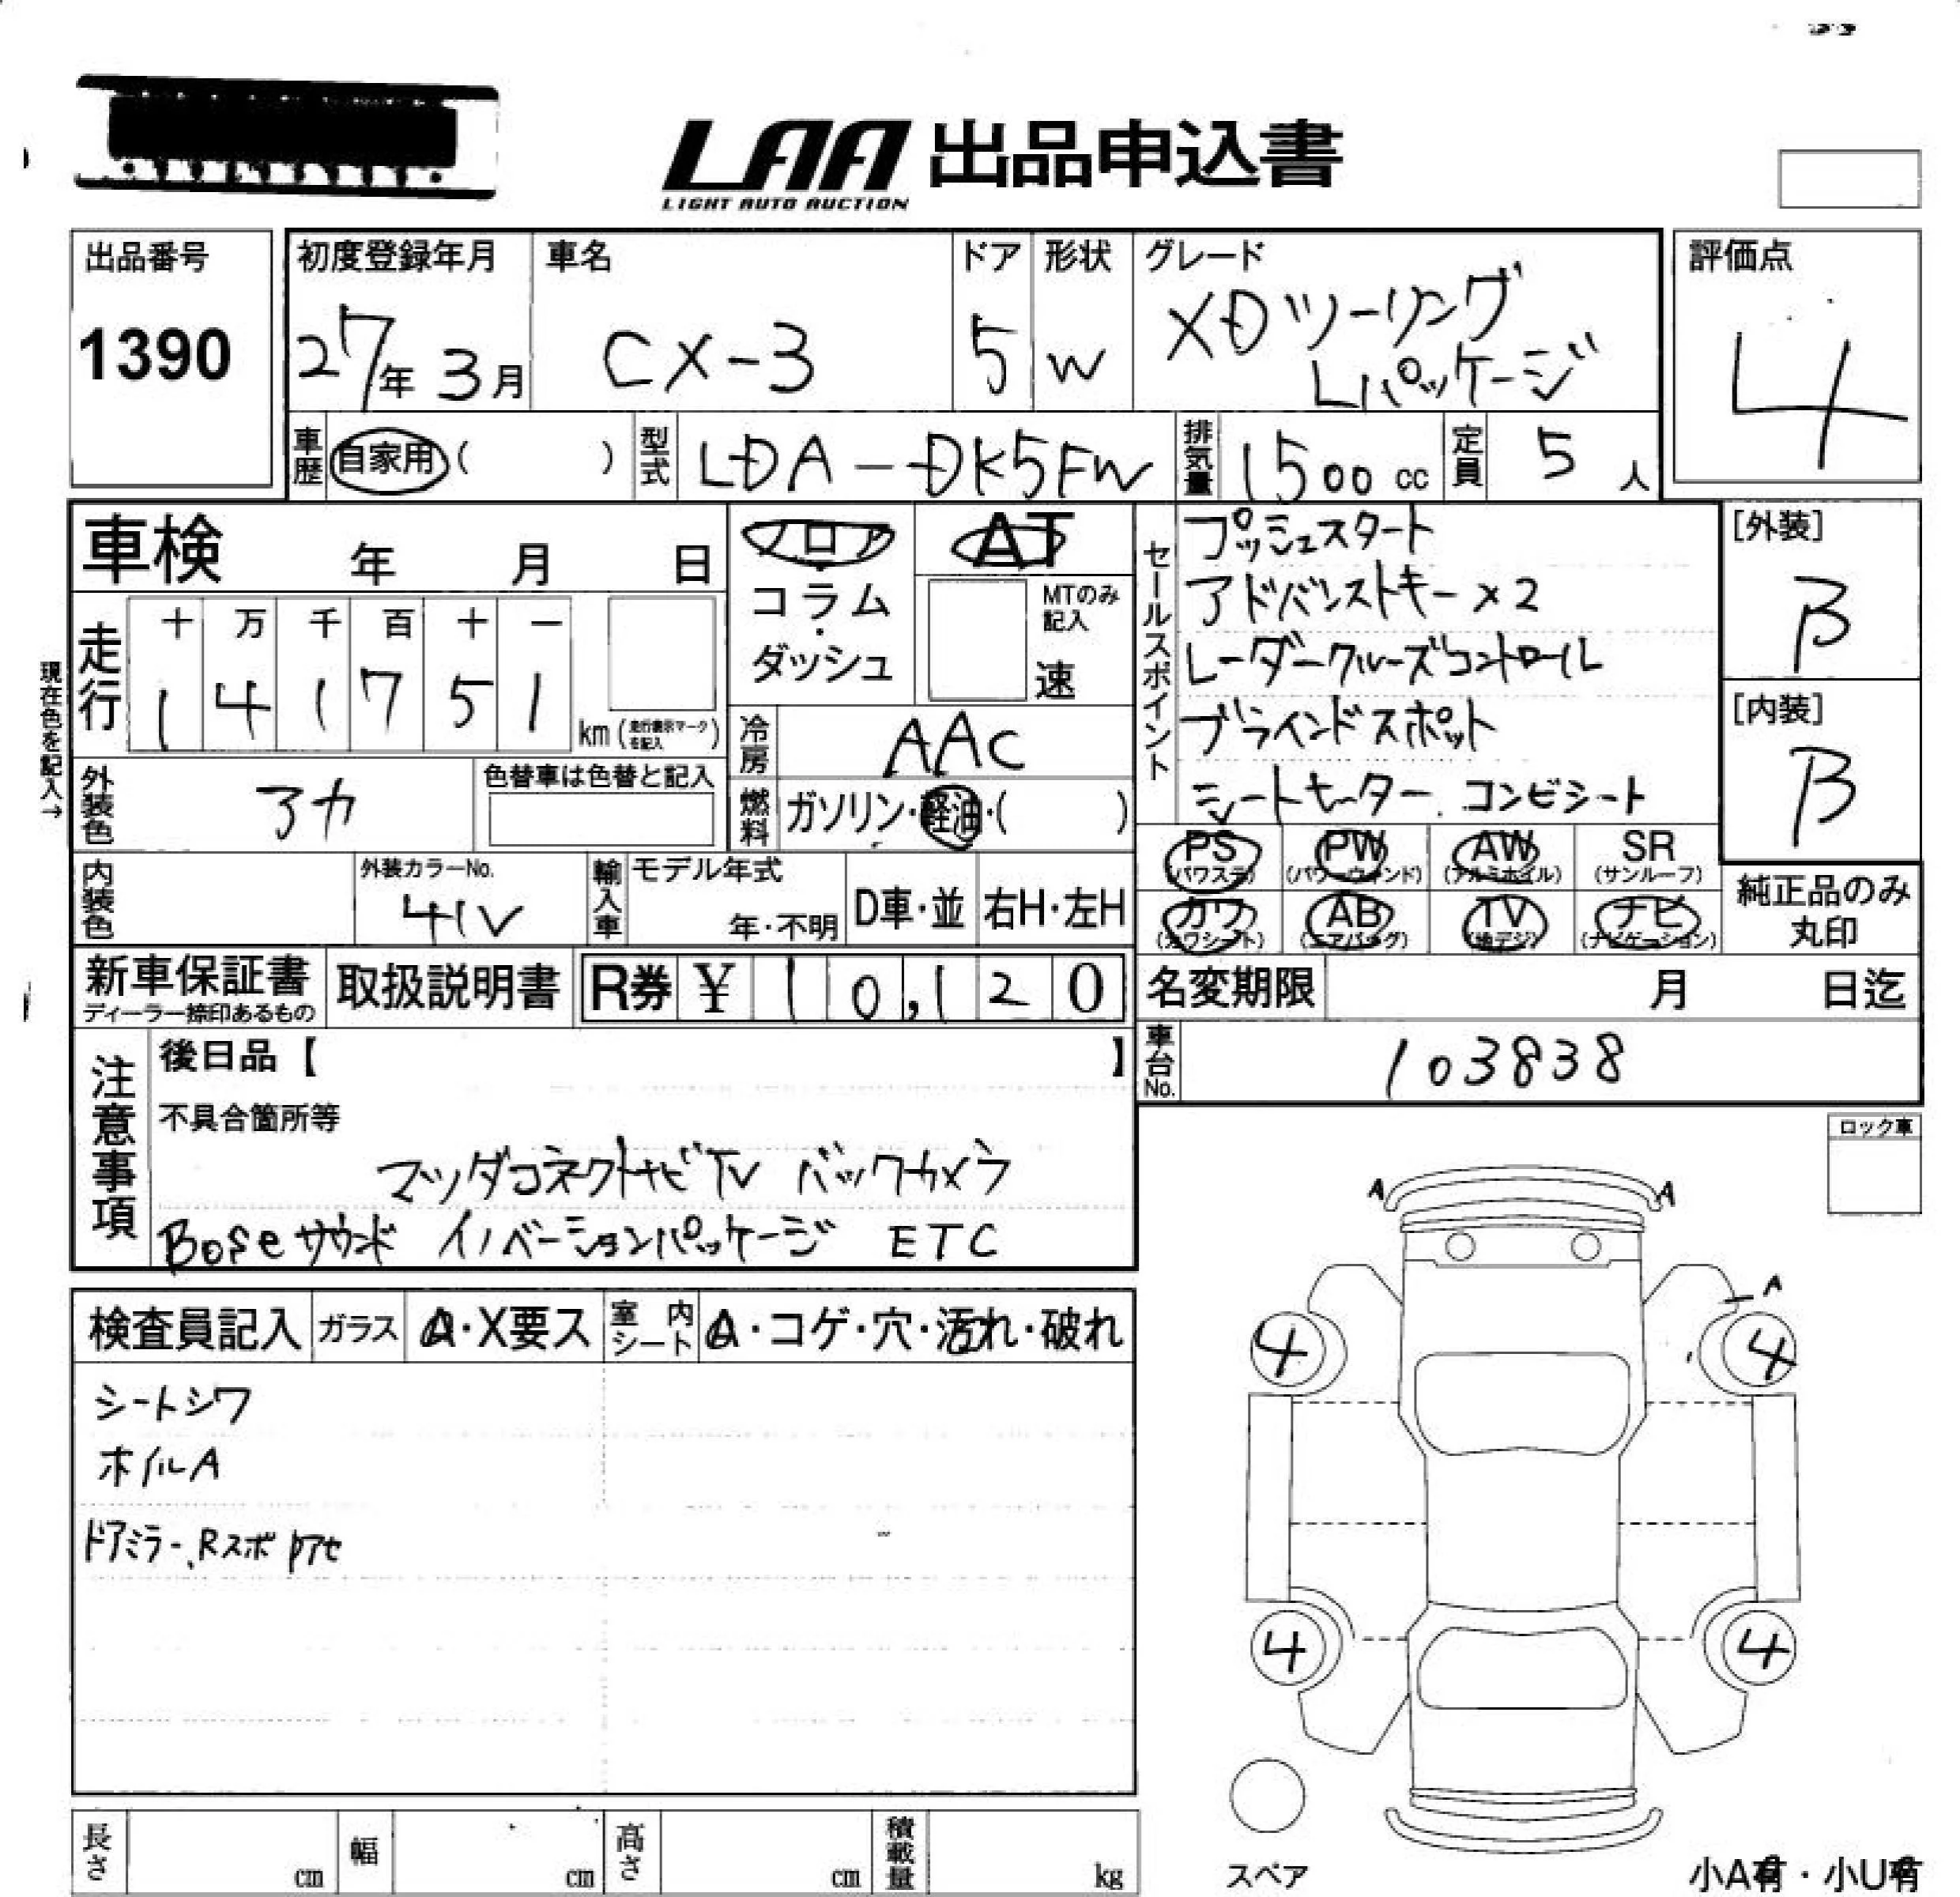 LAA 出品申込書
LIGHT AUTO AUCTION
出品番号
1390
初度登録年月
27年 3月
車名
CX-3
ドア
5
形状
W
グレード
XDツーリング
Lパッケージ
評価点
4
車歴 自家用 ( )
型式 LDA-DK5FW
排気量 1500 cc
定員 5 人
車検 年 月 日
フロア
コラム
・
ダッシュ
AT
MTのみ
記入
速
セールスポイント
プッシュスタート
アドバンストキー×2
レーダークルーズコントロール
ブラインドスポット
シートヒーター コンビシート
[外装]
B
[内装]
B
現在色を記入→
走行
十 万 千 百 十 一
1 4 1 7 5 1
km (走行表示マークを記入)
冷房 AAC
外装色
色替車は色替と記入
燃料 ガソリン・軽油・( )
PS (パワステ)
PW (パワーウィンド)
AW (アルミホイル)
SR (サンルーフ)
カワ (カワシート)
AB (エアバッグ)
TV (地デジ)
ナビ (ナビゲーション)
純正品のみ
丸印
内装色
外装カラーNo.
41V
輸入車
モデル年式
年・不明
D車・並
右H・左H
新車保証書
ディーラー捺印あるもの
取扱説明書
R券 ¥ 10,120
名変期限 月 日迄
車台No. 103838
注意事項
後日品【 】
不具合箇所等
マツダコネクトナビTV バックカメラ
Boseサウンド イノベーションパッケージ ETC
ロック車
検査員記入
ガラス A・X要ス
室内シート A・コゲ・穴・汚れ・破れ
シートシワ
ホイルA
ドアミラー、Rスポ
A A
A
4 4
4 4
スペア
長さ cm
幅 cm
高さ cm
積載量 kg
小A有・小U有